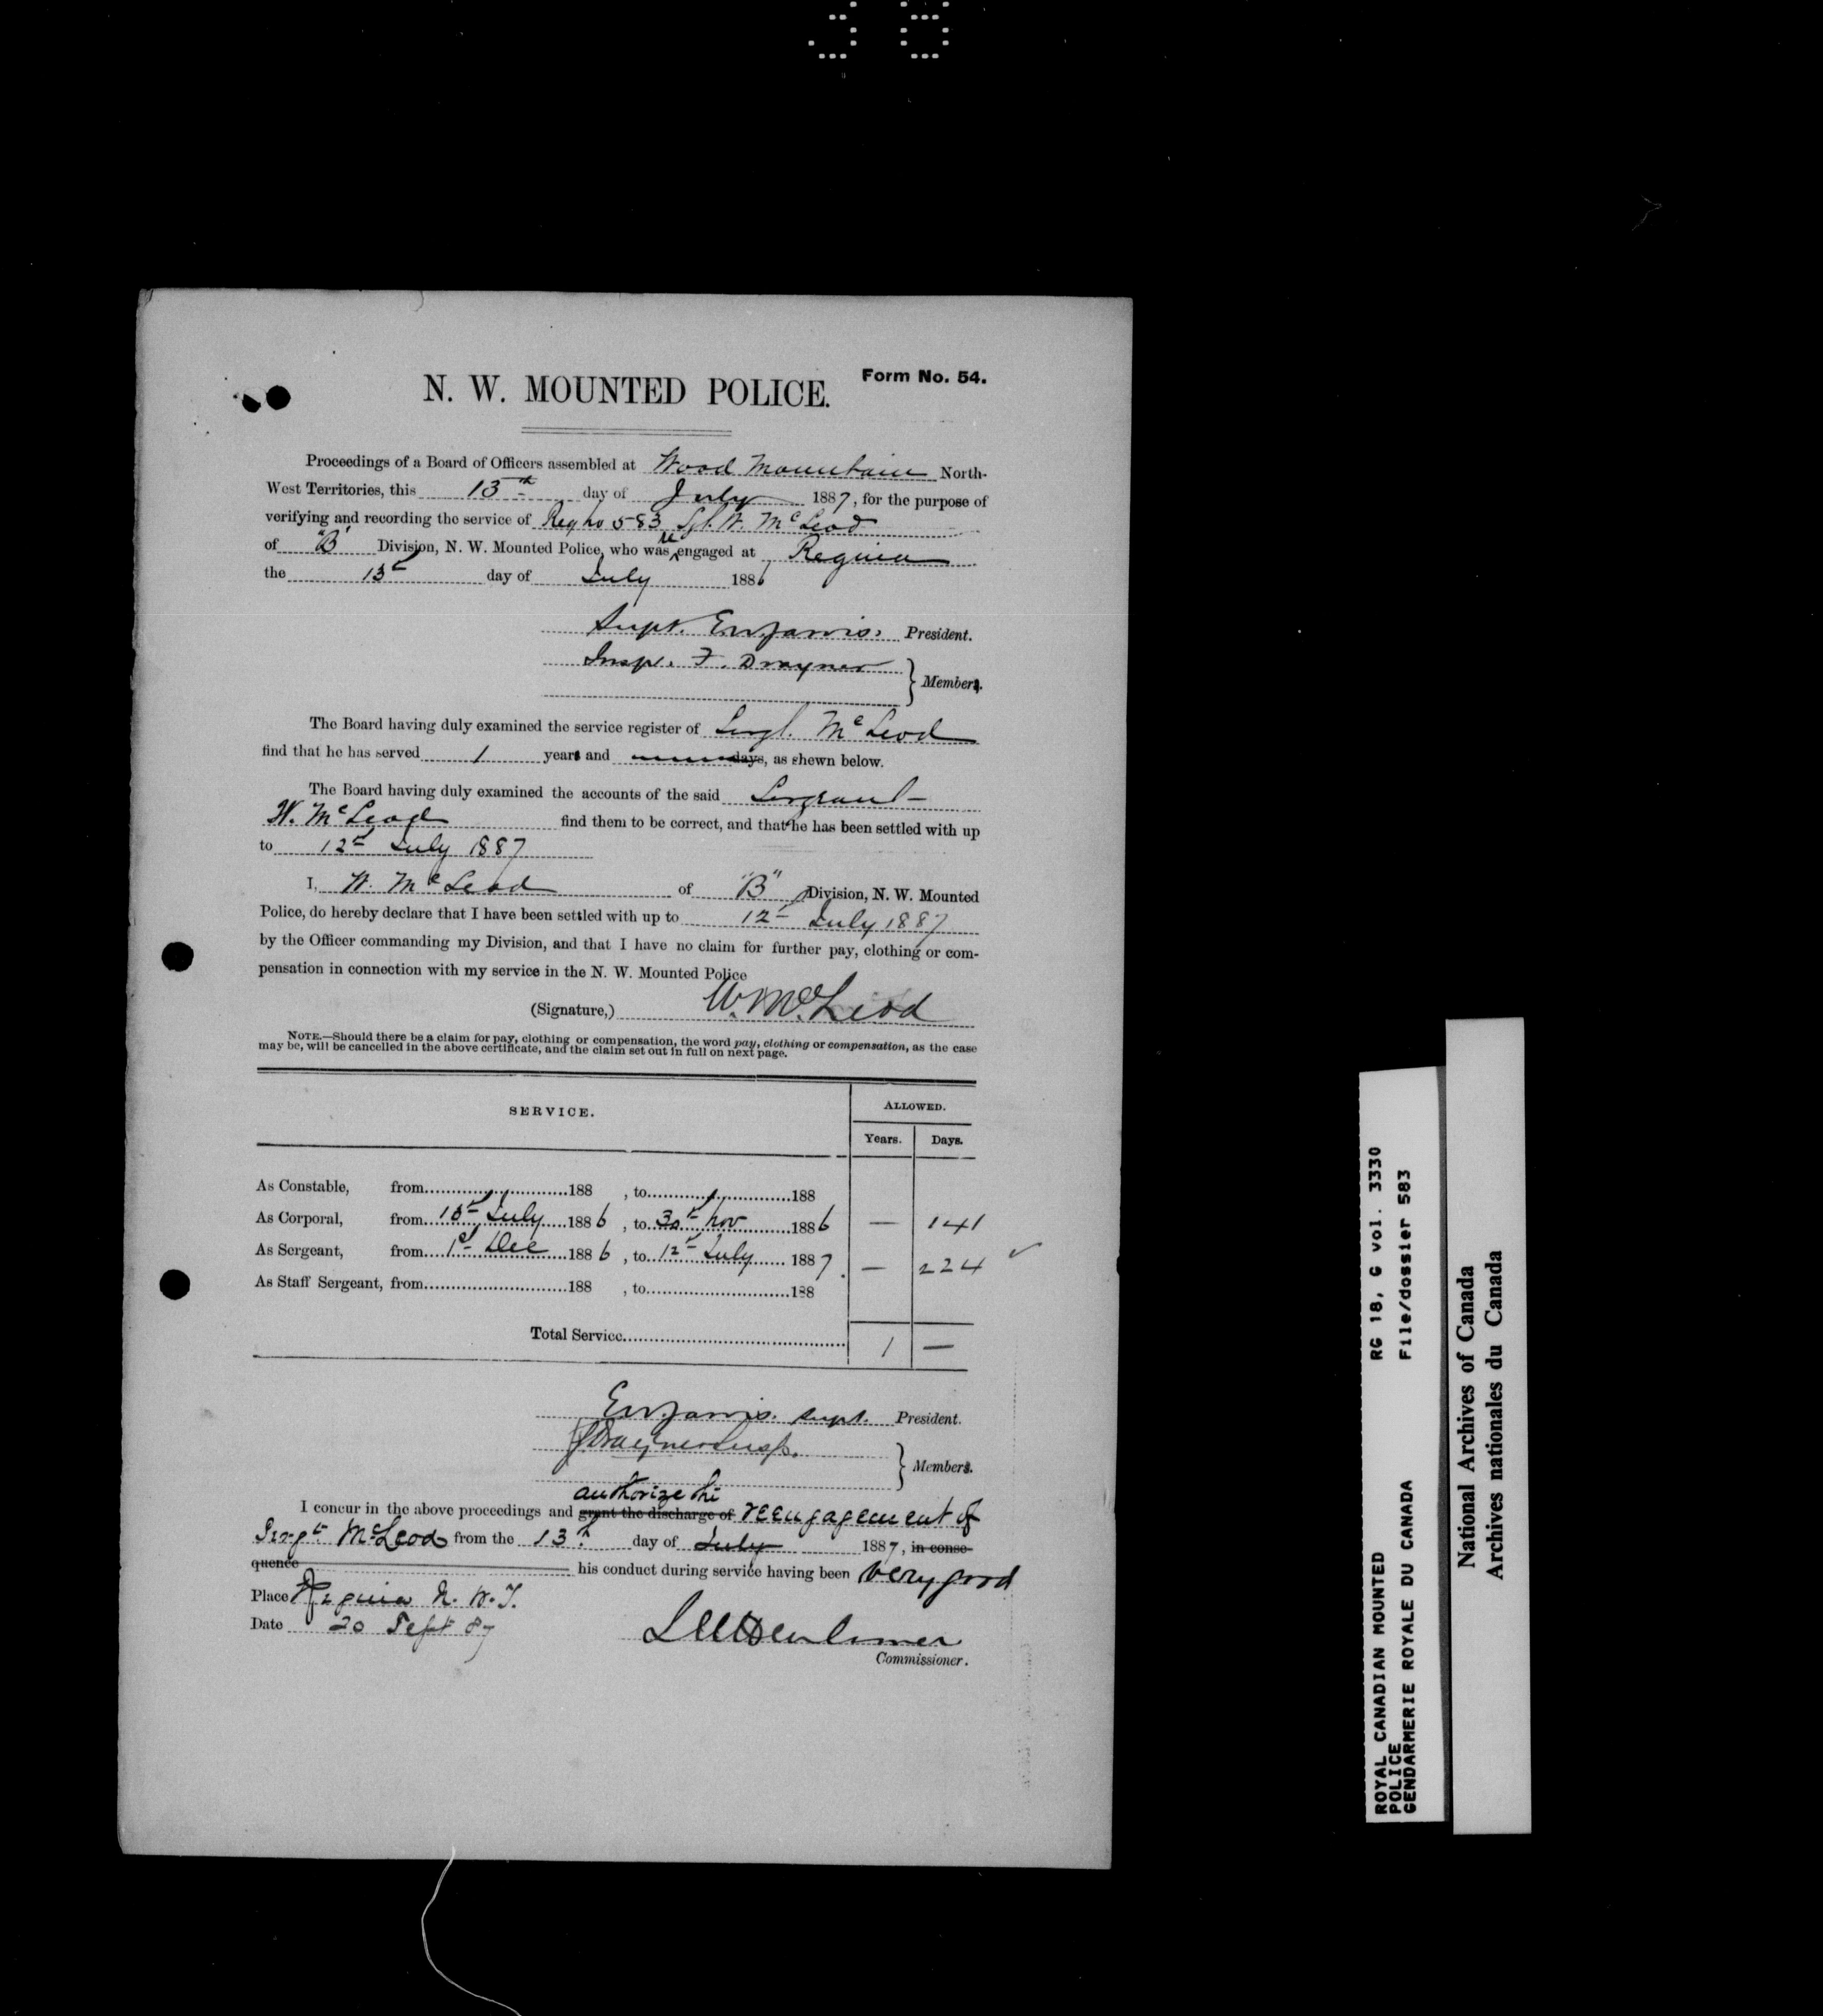 N. W. MOUNTED POLICE.
Form No. 54.
Proceedings of a Board of Officers assembled at Wood Mountain North-
West Territories, this 13th day of July 1887, for the purpose of
verifying and recording the service of Reg no 583 Sgt. W. McLeod
of "B" Division, N. W. Mounted Police, who was re engaged at Regina
the 13th day of July 1886
Supt. EWJarvis. President.
Insp. F. Drayner
Members.
The Board having duly examined the service register of Sergt. McLeod
find that he has served 1 years and days, as shewn below.
The Board having duly examined the accounts of the said Sergeant
W. McLeod find them to be correct, and that he has been settled with up
to 12th July 1887
I, W. McLeod of "B" Division, N. W. Mounted
Police, do hereby declare that I have been settled with up to 12th July 1887
by the Officer commanding my Division, and that I have no claim for further pay, clothing or com-
pensation in connection with my service in the N. W. Mounted Police
(Signature,) W. McLeod
NOTE.—Should there be a claim for pay, clothing or compensation, the word pay, clothing or compensation, as the case
may be, will be cancelled in the above certificate, and the claim set out in full on next page.
SERVICE. ALLOWED.
Years. Days.
As Constable, from 188 , to 188
As Corporal, from 13th July 1886, to 30th Nov 1886 — 141
As Sergeant, from 1st Dec 1886, to 12th July 1887. — 224 ✓
As Staff Sergeant, from 188 , to 188
Total Service 1 —
EWJarvis. Supt. President.
Drayner Insp.
Members.
authorize the
I concur in the above proceedings and grant the discharge of reengagement of
Sergt McLeod from the 13th day of July 1887, in conse-
quence his conduct during service having been very good
Place Regina N. W. T.
Date 20 Sept 87
Commissioner.
ROYAL CANADIAN MOUNTED RG 18, G vol. 3330
POLICE
GENDARMERIE ROYALE DU CANADA File/dossier 583
National Archives of Canada
Archives nationales du Canada